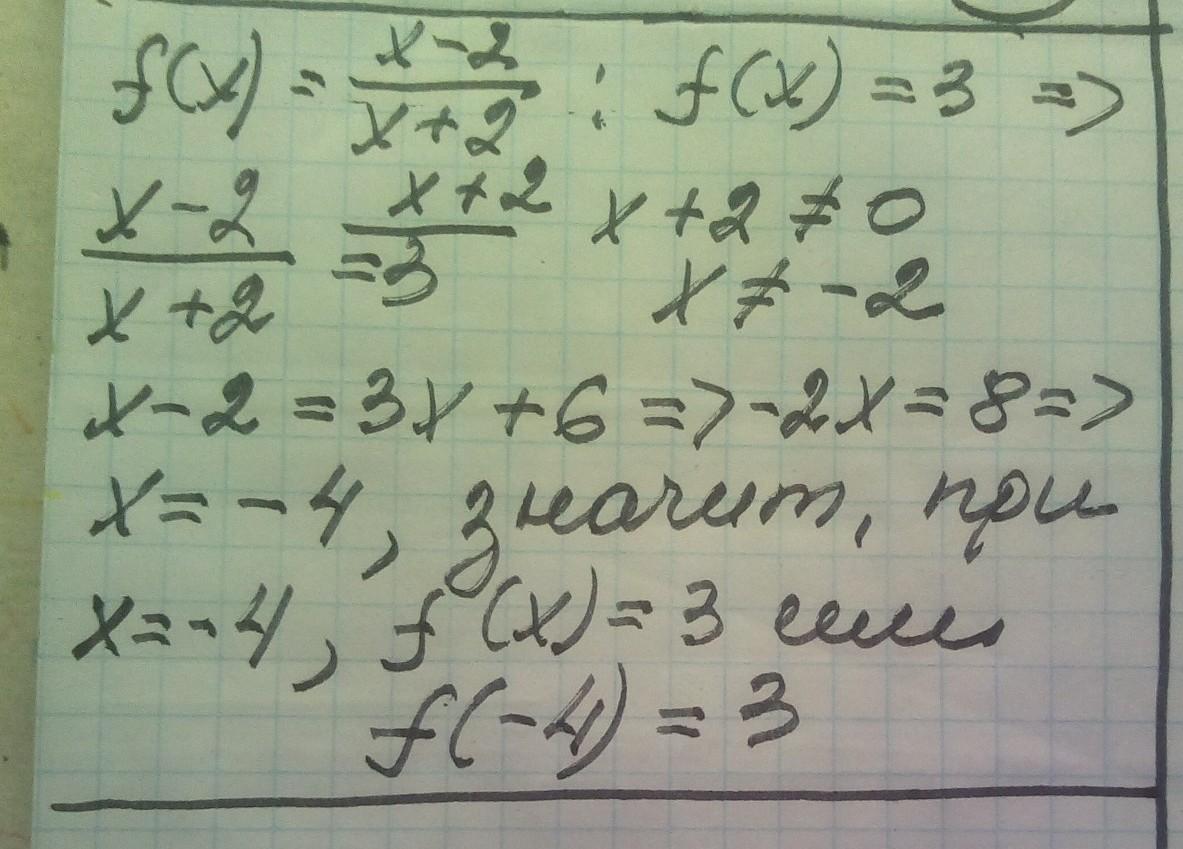 f(x) = x-2/x+2 ; f(x) = 3 =>
x-2/x+2 = x+2/3 x+2 ≠ 0
x ≠ -2
x-2 = 3x+6 => -2x = 8 =>
x = -4, значит, при
x = -4, f(x) = 3 или
f(-4) = 3